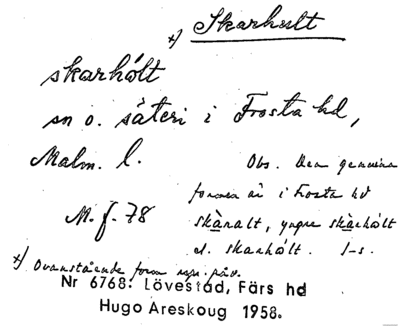 x) Skarhult
skarhólt
sn o. säteri i Frosta hd,
Malm. l.
Obs. Den genuina
formen är i Frosta hd
skànalt, yngre skàrhólt
M. f. 78
el. skarhólt. I-s.
x) Ovanstående form upp. påv.
Nr 6768: Lövestad, Färs hd
Hugo Areskoug 1958.